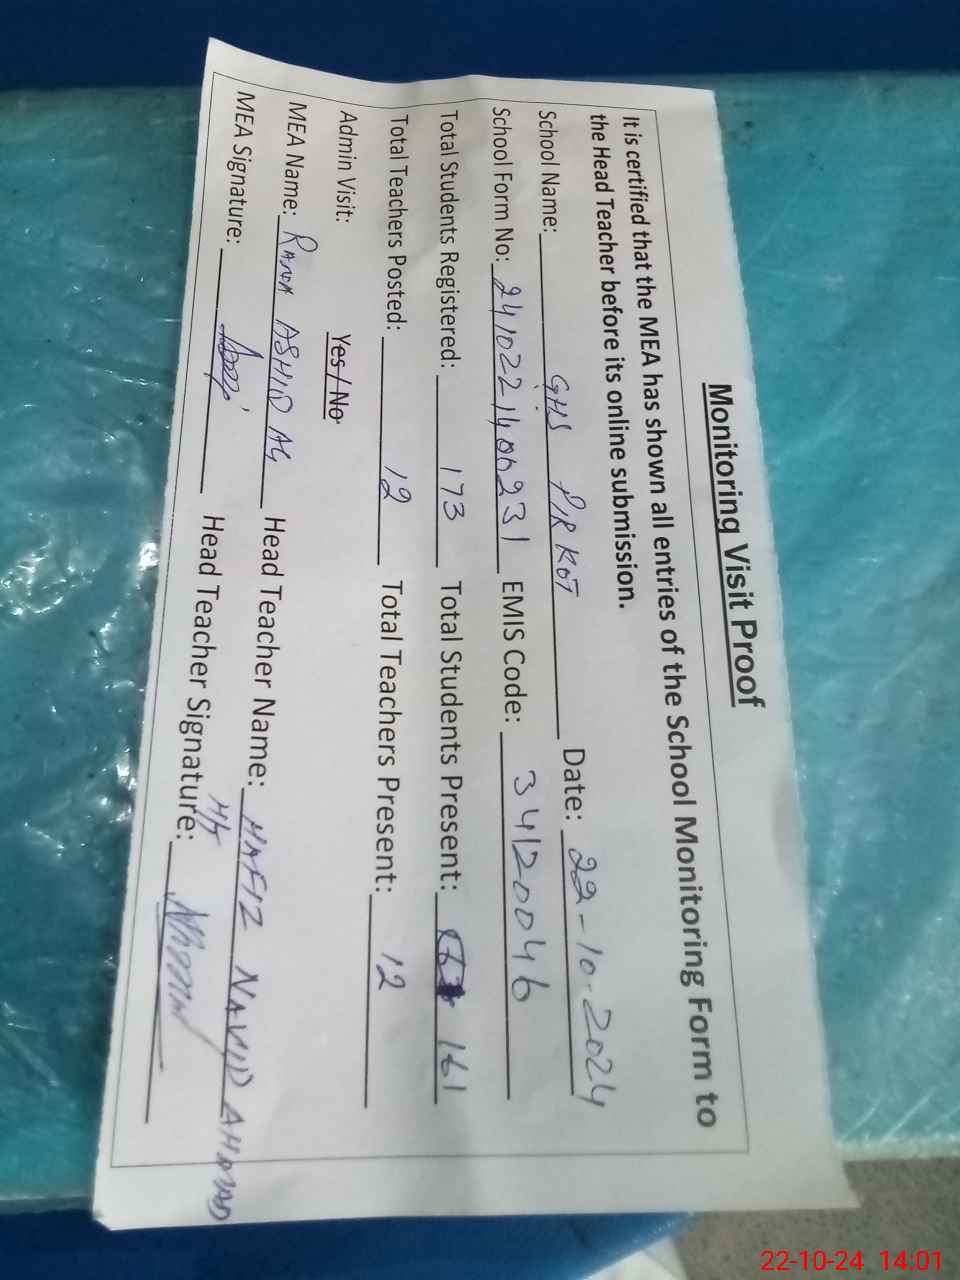 Monitoring Visit Proof
It is certified that the MEA has shown all entries of the School Monitoring Form to
the Head Teacher before its online submission.
School Name: GHS PIR KOT Date: 22-10-2024
School Form No: 2410221400231 EMIS Code: 34120046
Total Students Registered: 173 Total Students Present: 161
Total Teachers Posted: 12 Total Teachers Present: 12
Admin Visit: Yes/No
MEA Name: RANA ASHIQ Head Teacher Name: HAFIZ NAVID AHMAD
MEA Signature: Head Teacher Signature:
22-10-24 14:01